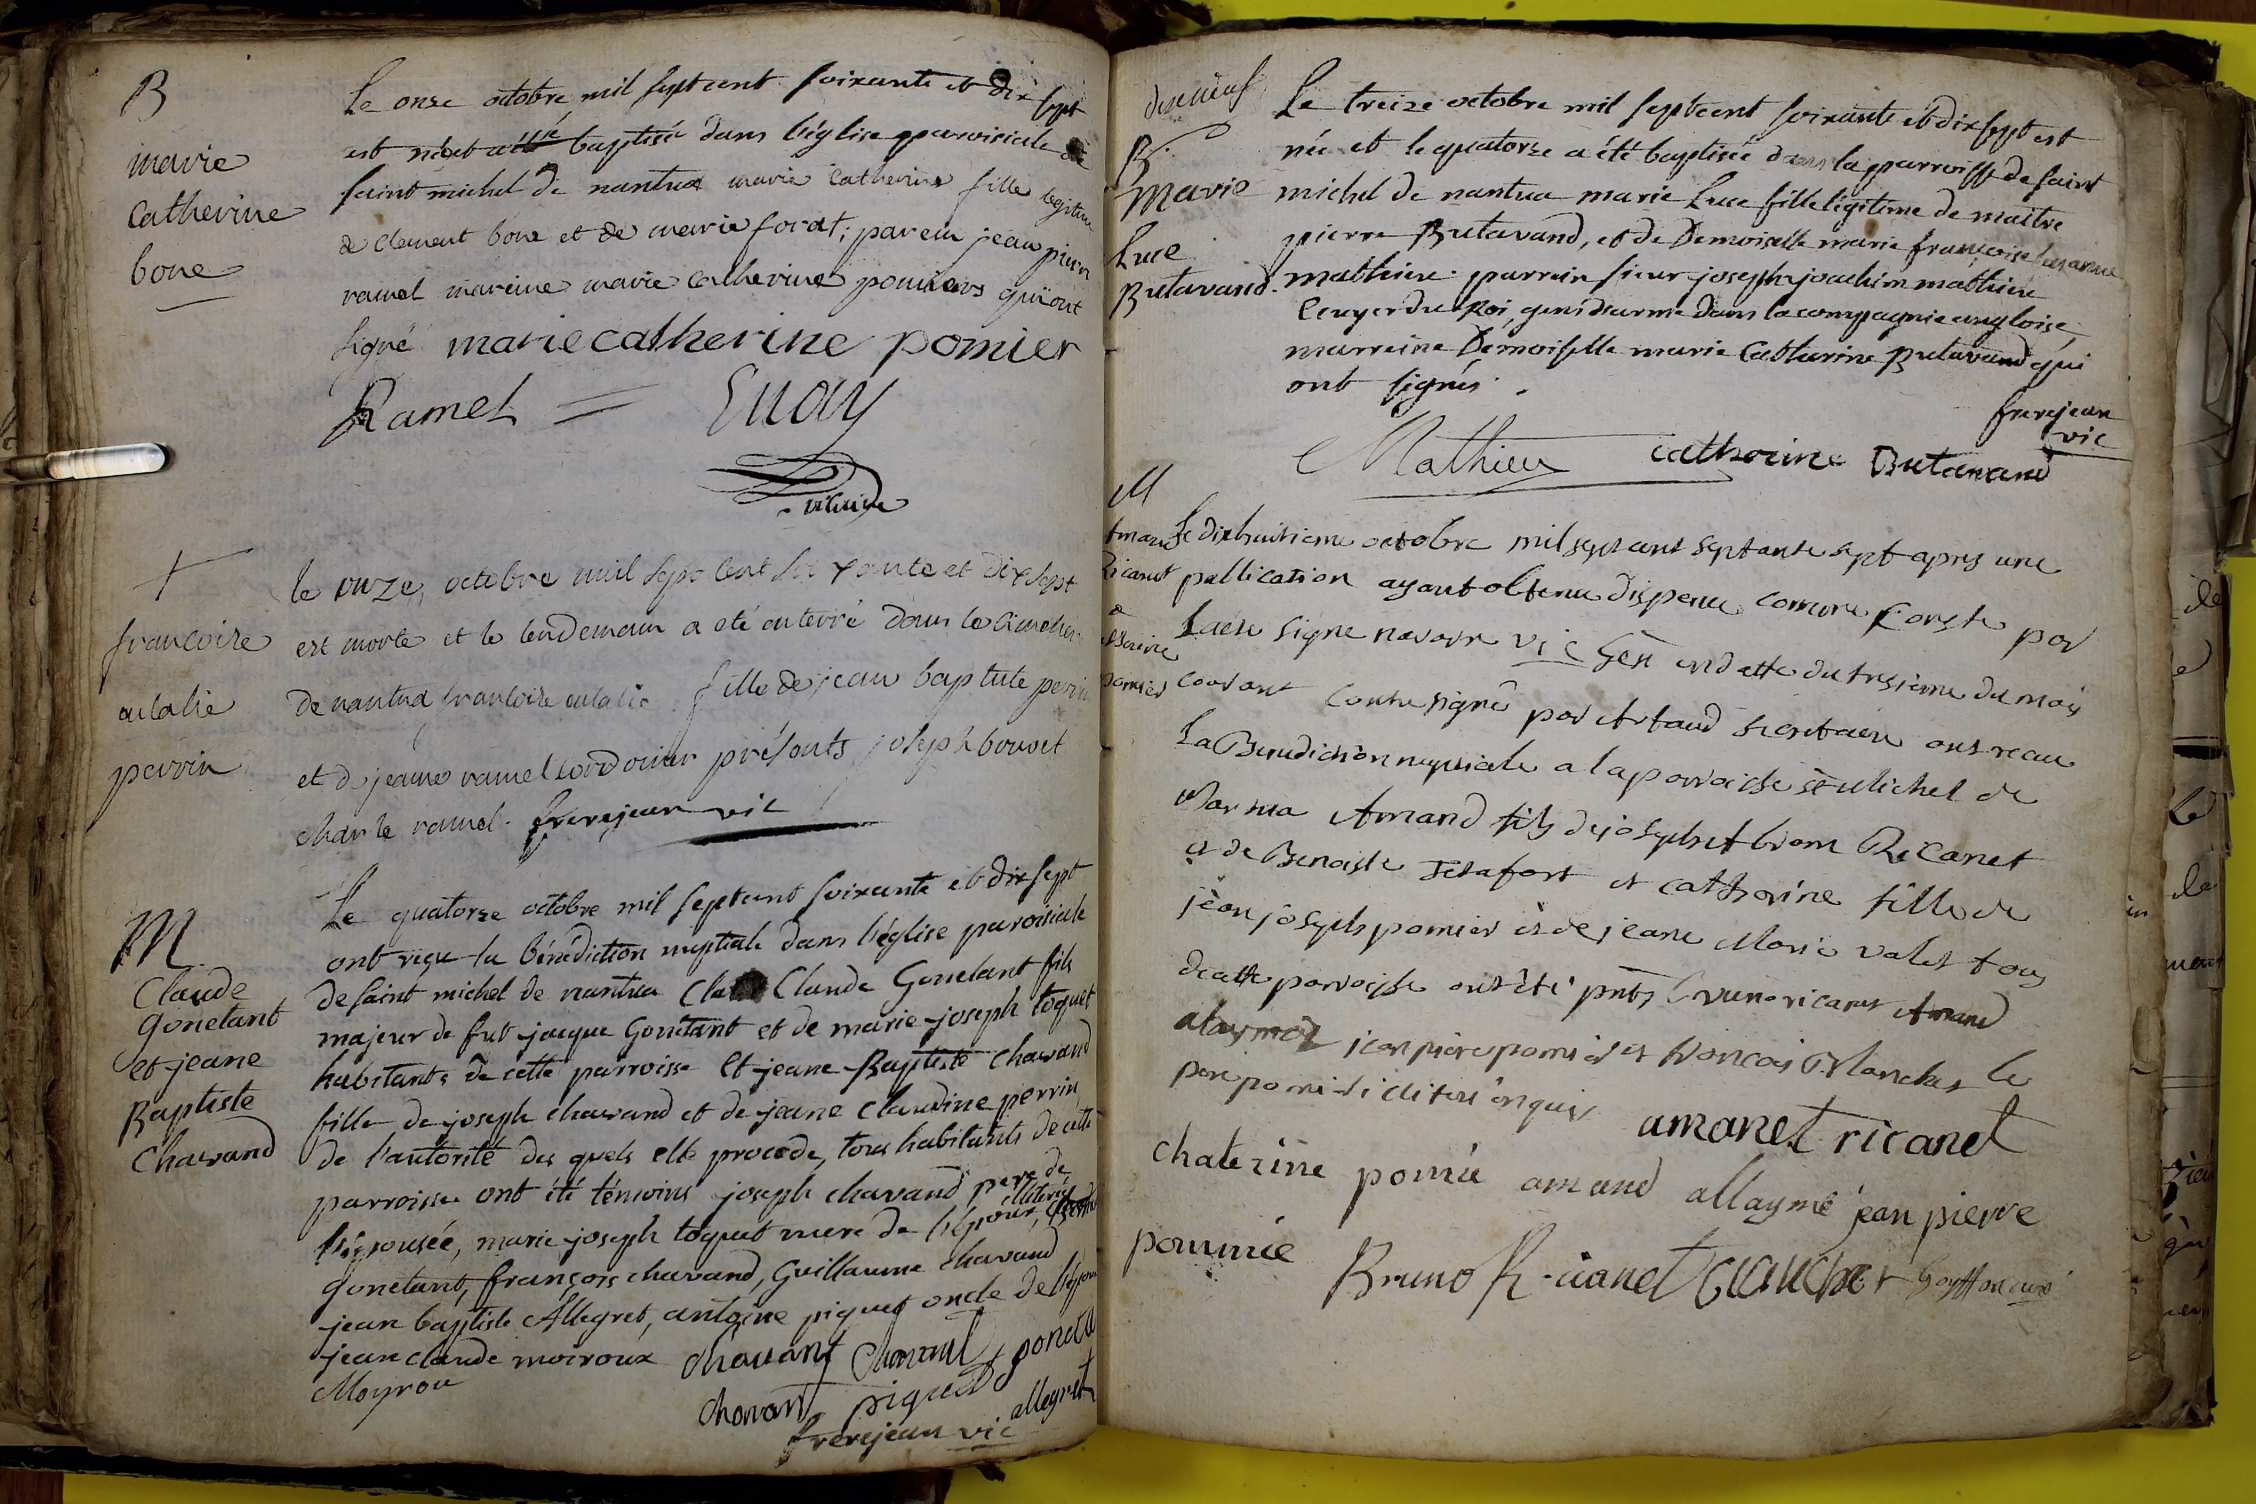 B
marie
Catherine
bone
Le onze octobre mil sept cent soixante et dix sept
est née et a été baptisée dans l'église parroisiale de
saint michel de nantua marie Catherine fille legitime
de Clement bone et de marie forat; parein jean pierre
ramel mareine marie catherine pomiers qui ont
signé marie catherine pomier
Ramel = Guay
vicaire
+
francoise
eulalie
perrin
le onze octobre mil sept cent soixante et dix sept
est morte et le lendemain a eté enterré dans le cimetier
de nantua francoise eulalie fille de jean baptiste perrin
et de jeane ramel cordonier présents joseph bouvet
charle ramel. frerejean vic
M
Claude
gonetant
et jeane
Baptiste
Chavand
Le quatorze octobre mil sept cent soixante et dix sept
ont reçu la bénédiction nuptiale dans l'église paroisiale
de saint michel de nantua Claude Gonetant fils
majeur de fut jacque Gonetant et de marie joseph toquet
habitants de cette parroisse et jeane Baptiste Chavand
fille de joseph chavand et de jeane Claudine perrin
de l'autorité des quels elle procede, tous habitants de cette
parroisse ont été témoins joseph chavand pere de
l'épousée, marie joseph toquet mere de l'époux, illiterés
gonetant, françois chavand, Guillaume chavand
jean baptiste Allegret, antoine piquet oncle de l'époux
jean claude moiroux chavant Chavand goneta
Moyrou
chavant piquet allegret
frerejean vic
dix neuf
B.
Marie
Luce
Butavand.
Le treize octobre mil sept cent soixante et dix sept est
née et le quatorze a été baptisée dans la parroisse de saint
michel de nantua marie Luce fille légitime de maître
pierre Butavand, et de Demoiselle marie françoise suzanne
mathieu. parrein sieur joseph joachim mathieu
Ecuyer du Roi, gensdearme dans la compagnie angloise
marreine Demoiselle marie Catherine Butavand qui
ont signés.
frerejean
vic
Mathieu catherine Butavand
M
Amand
Ricanet
&
catherine
pomier
Le dixhuitieme octobre mil sept cent septante sept apres une
publication ayant obtenu dispense comme conste par
Lacte signe navarre vic gen en datte du tresieme du mois
courant contresigné par Artaud secretaire ont receu
La Benediction nuptiale a la parroisse st Michel de
Nantua Amand fils de joseph Ricanet
et de Benoiste et catherine fille de
jean joseph pomier et de jeane Marie valet tous
de cette parroisse ont été pnts Bruno ricanet Amand
alaymoz jean pierre pomier et francois Blanchet le
pere pomier illiteré enquis amanet ricanet
chaterine pomié amand allaymé jean pierre
pommié
Bruno Ricanet Goyffon curé